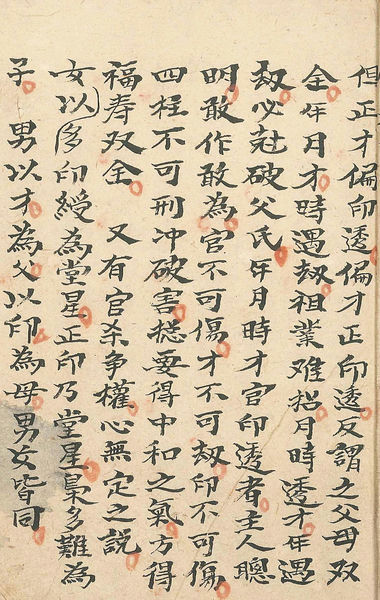 但正才偏印透偏才正印透反謂之父母双
全年月才時遇劫祖業难招月時透才年遇
劫必尅破父氏年月時才官印透者主人聰
明敢作敢為官不可傷才不可劫印不可傷
四柱不可刑冲破害揔要得中和之氣方得
福寿双全 又有官杀争權心無定之説
女以多印綬為堂星正印乃堂星梟多難為
子 男以才為父以印為母男女皆同